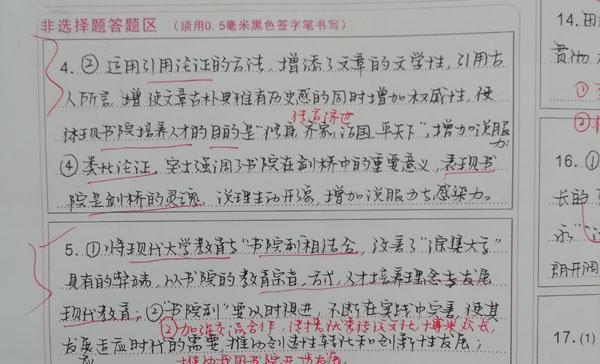 非选择题答题区 （须用0.5毫米黑色签字笔书写）
4. ② 运用引用论证的方法，增添了文章的文学性，引用古
人所言，增使文章古朴典雅有历史感的同时增加权威性，使
经言济世
体现书院培养人才的目的是“修身、齐家、治国、平天下”，增加说服
力
④ 类比论证，突出强调了书院在剑桥中的重要意义，表现书
院是剑桥的灵魂，说理生动形象，增加说服力与感染力。
5. ①将现代大学教育与“书院制”相结合，改善了“
具有的弊端，以书院的教育宗旨、方式、人才培养理念去发展
现代教育；②“书院制”要与时俱进，不断在实践中完善，使其
②加强交流合作，传播优秀传统文化，博采众长，
发展适应时代的需要，推动创造性转化和创新性发展；
推动我国书院开放发展
14.
贯彻
①
②
16. ①
长的
永“
朗开阔
17. (1)